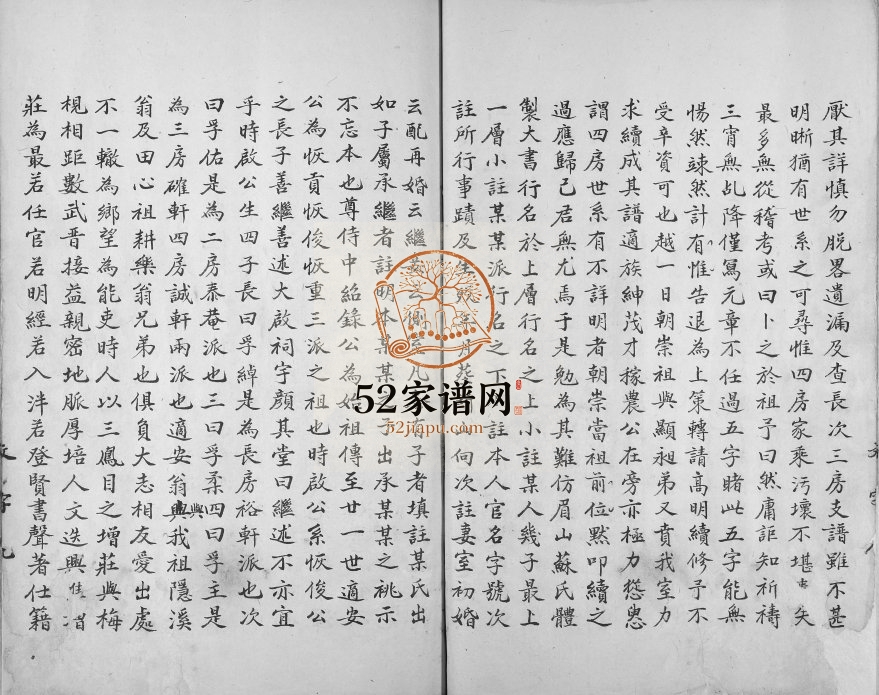 厭其詳慎勿脱畧遺漏及查長次三房支譜雖不甚
明晰猶有世系之可尋惟四房家乘污壞不堪失
最多無從稽考或曰卜之於祖予曰然庸詎知祈禱
三宵無乩降僅寫元章不任過五字睹此五字能無
惕然竦然計有惟告退為上策轉請高明續修予不
受卒資可也越一日朝崇祖與顯昶弟又賁我室力
求續成其譜適族紳茂才稼農公在旁亦極力慫恿
謂四房世系有不詳明者朝崇當祖前位默叩續之
過應歸己君無尤焉于是勉為其難仿眉山蘇氏體
製大書行名於上層行名之上小註某人幾子最上
一層小註某某派行名之下註本人官名字號次
註所行事蹟及生向次註妻室初婚
云配再婚云繼有子者填註某氏出
如子屬承繼者註明本某某之子出承某某之祧示
不忘本也尊侍中紹錄公為始祖傳至廿一世適安
公為恢貢恢俊恢重三派之祖也時啟公系恢俊公
之長子善繼善述大啟祠宇顏其堂曰繼述不亦宜
乎時啟公生四子長曰孚綽是為長房裕軒派也次
曰孚佑是為二房泰菴派也三曰孚柔四曰孚主是
為三房確軒四房誠軒兩派也適安翁與我祖隱溪
翁及田心祖耕樂翁兄弟也俱負大志相友愛出處
不一轍為鄉望為能吏時人以三鳳目之增莊與梅
梘相距數武晉接益親密地脈厚培人文迭興
莊為最若任官若明經若入泮若登賢書聲著仕籍
52家谱网
52jiapu.com